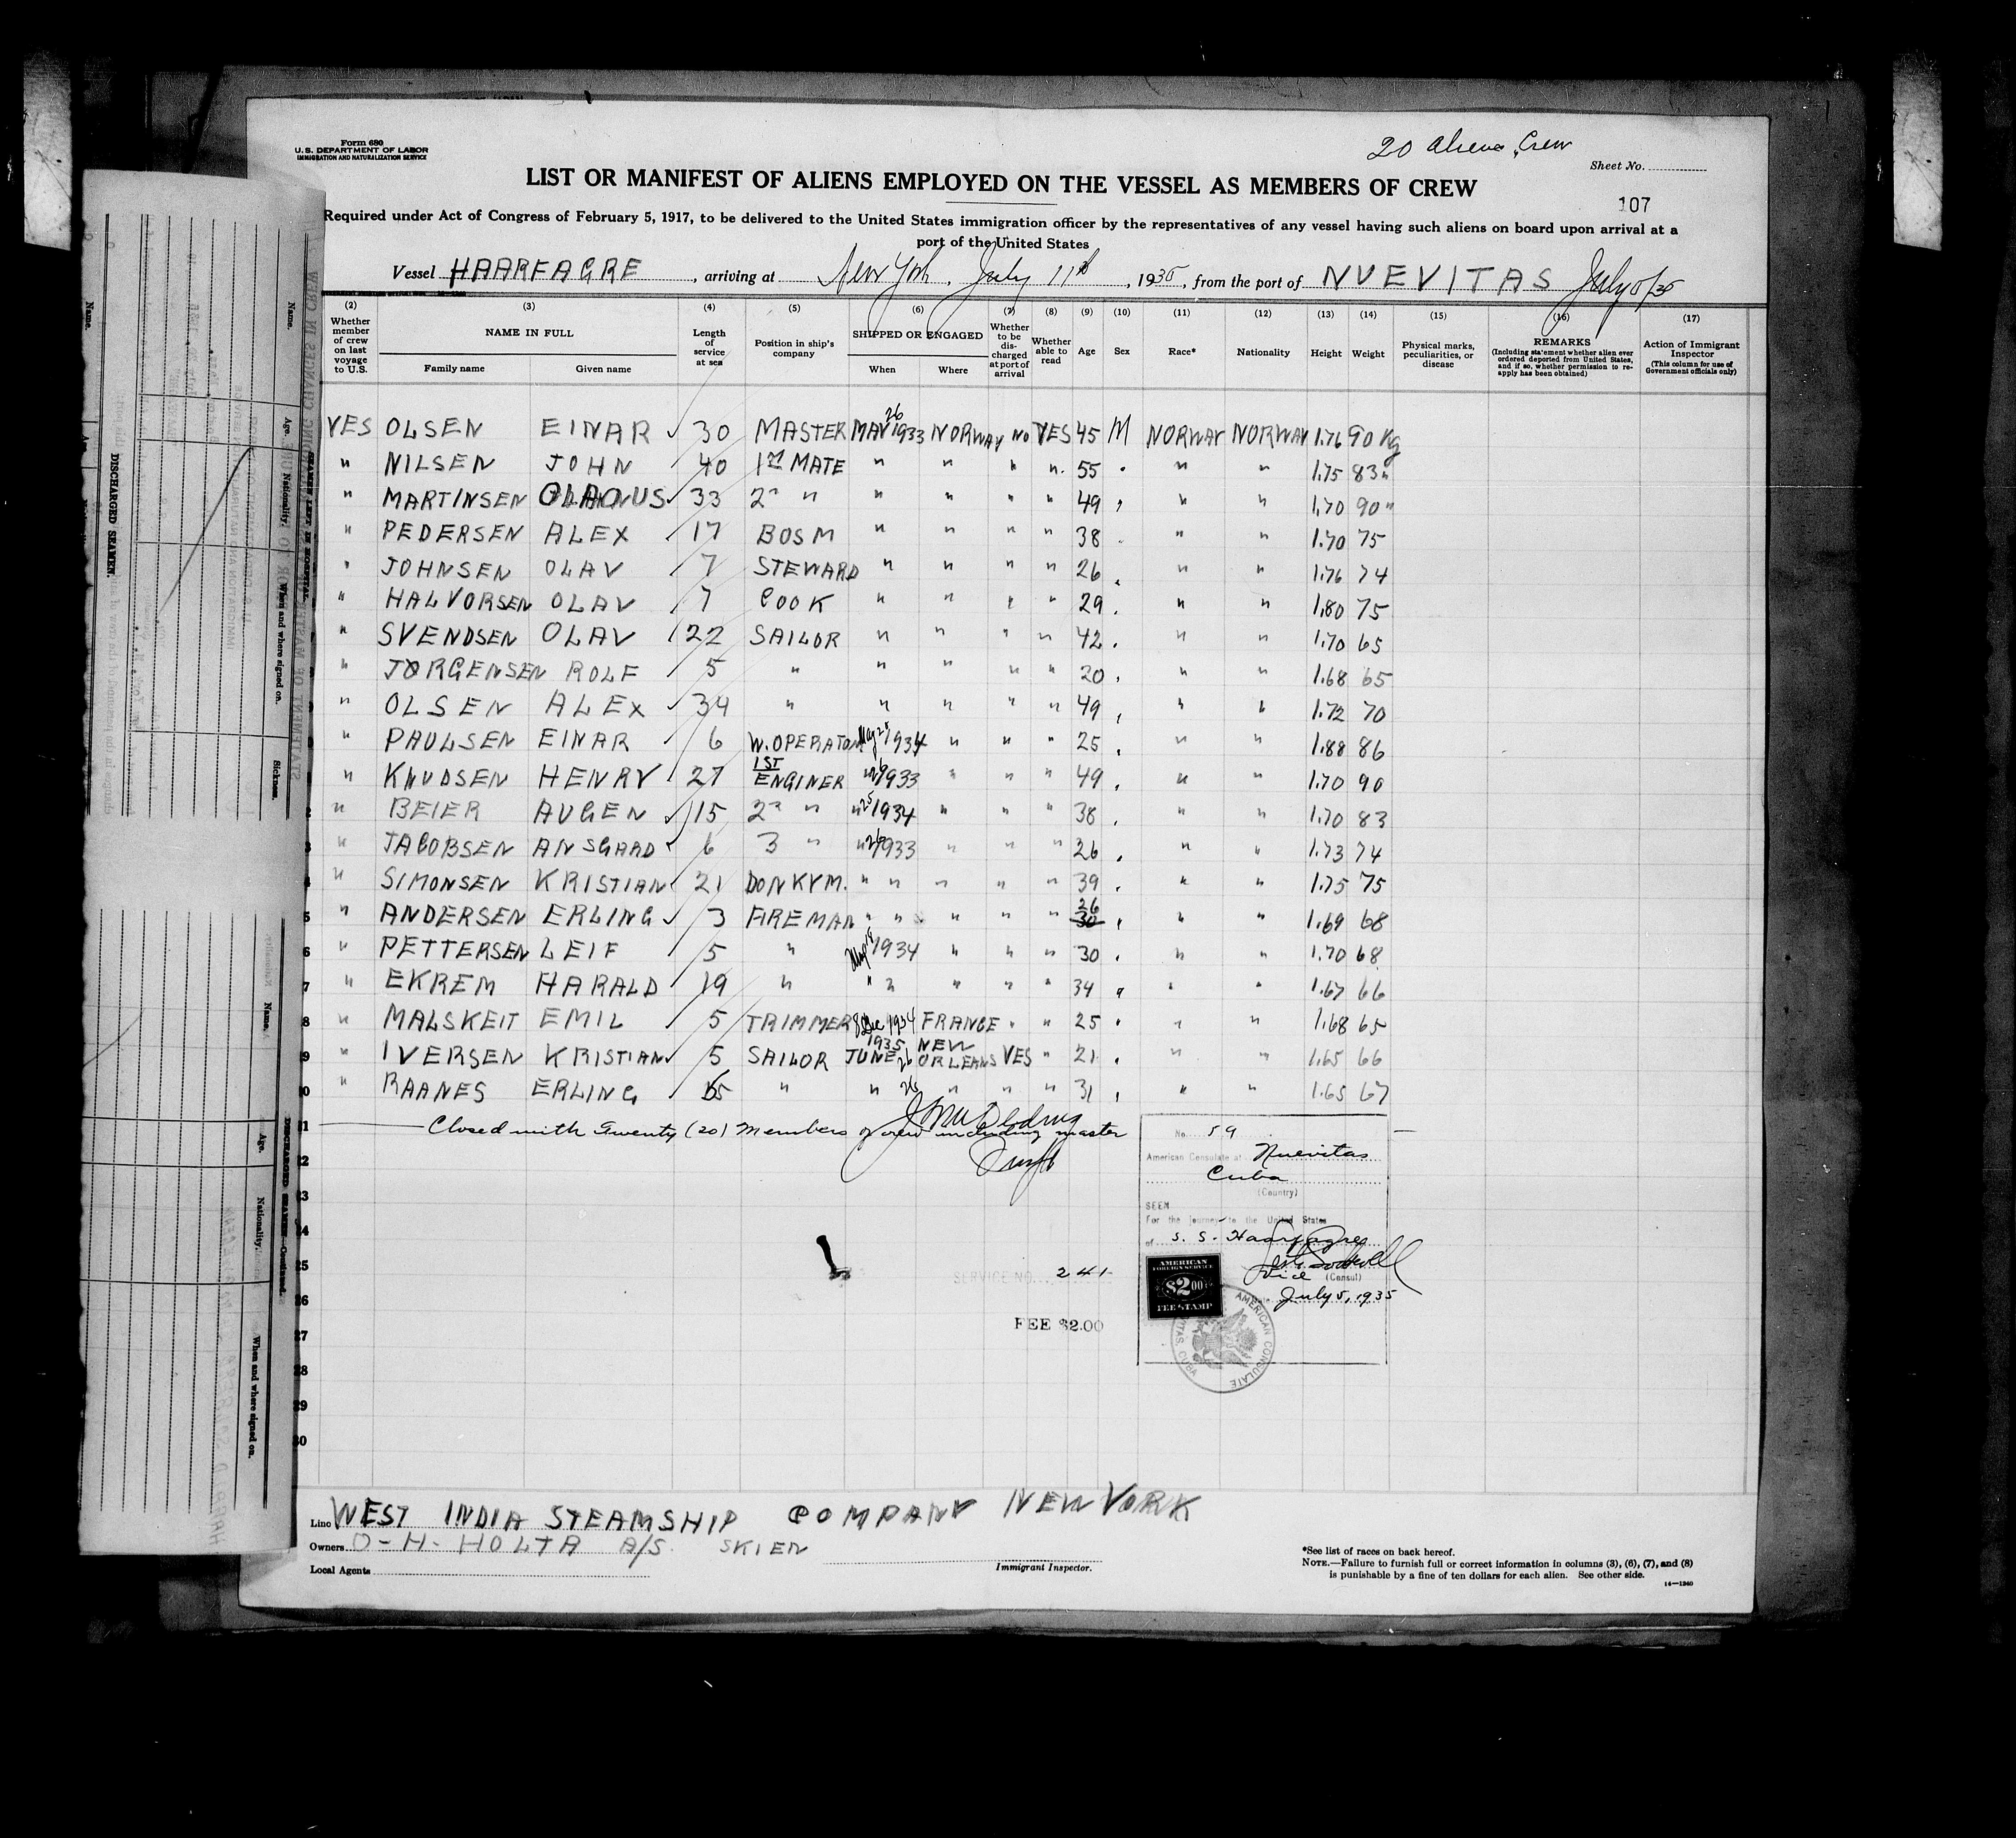 Form 680
U.S. DEPARTMENT OF LABOR
IMMIGRATION AND NATURALIZATION SERVICE
20 Aliens, Crew
Sheet No.
LIST OR MANIFEST OF ALIENS EMPLOYED ON THE VESSEL AS MEMBERS OF CREW
107
Required under Act of Congress of February 5, 1917, to be delivered to the United States immigration officer by the representatives of any vessel having such aliens on board upon arrival at a
port of the United States
Vessel HAARFAGRE, arriving at New York, July 11th, 1935, from the port of NUEVITAS July 5/35
(2) (3) (4) (5) (6) (7) (8) (9) (10) (11) (12) (13) (14) (15) (16) (17)
Whether member of crew on last voyage to U.S. NAME IN FULL Family name Given name Length of service at sea Position in ship's company SHIPPED OR ENGAGED When Where Whether to be discharged at port of arrival Whether able to read Age Sex Race* Nationality Height Weight Physical marks, peculiarities, or disease REMARKS (Including statement whether alien ever ordered deported from United States, and if so, whether permission to re-apply has been obtained) Action of Immigrant Inspector (This column for use of Government officials only)
YES OLSEN EINAR 30 MASTER MAY 26 1933 NORWAY NO YES 45 M NORWAY NORWAY 1.76 90 Kg
" NILSEN JOHN 40 1ST MATE " " " " 55 " " 1.75 83 "
" MARTINSEN 33 2 " " " " " 49 " " 1,70 90 "
" PEDERSEN ALEX 17 BOSM " " " " 38 " " 1.70 75
" JOHNSEN OLAV 7 STEWARD " " " " 26 " " 1.76 74
" HALVORSEN OLAV 7 COOK " " " " 29 " " 1,80 75
" SVENDSEN OLAV 22 SAILOR " " " " 42 " " 1.70 65
" JØRGENSEN ROLF 5 " " " " " 20 " " 1.68 65
" OLSEN ALEX 34 " " " " " 49 " " 1.72 70
" PAULSEN EINAR 6 W. OPERATOR May 1934 " " " 25 " " 1.88 86
" KNUDSEN HENRY 27 1ST ENGINER " 26 1933 " " " 49 " " 1.70 90
" BEIER AUGEN 15 2 " " 25 1934 " " " 38 " " 1.70 83
" JACOBSEN ANSGARD 6 3 " " 26 1933 " " " 26 " " 1.73 74
" SIMONSEN KRISTIAN 21 DONKYM. " " " " " 39 " " 1.75 75
" ANDERSEN ERLING 3 FIREMAN " " " " " 26 30 " " 1.69 68
" PETTERSEN LEIF 5 " 1934 " " " 30 " " 1.70 68
" EKREM HARALD 19 " " " " " " 34 " " 1.67 66
" MALSKEIT EMIL 5 TRIMMER 8 Dec 1934 FRANCE " " 25 " " 1.68 65
" IVERSEN KRISTIAN 5 SAILOR 1935 JUNE 26 NEW ORLEANS YES " 21 " " 1.65 66
" RAANES ERLING " " 26 " " " 31 " " 1.65 67
Closed with Twenty (20) Members of crew including master
No. 59
American Consulate at Nuevitas
Cuba
(Country)
SEEN
For the journey to the United States
of S. S. Haarfagre
Vice (Consul)
July 5, 1935
AMERICAN
FOREIGN SERVICE
$2.00
FEE STAMP
AMERICAN CONSULATE
SERVICE NO. 241
FEE $2.00
22
23
24
25
26
27
28
29
30
Line WEST INDIA STEAMSHIP COMPANY NEW YORK
Owners O-H-HOLTA A/S. SKIEN
Local Agents
Immigrant Inspector.
*See list of races on back hereof.
NOTE.—Failure to furnish full or correct information in columns (3), (6), (7), and (8)
is punishable by a fine of ten dollars for each alien. See other side.
14—1240
DISCHARGED SEAMEN.
Name.
Age.
Nationality.
When and where signed on.
Sickness.
SEAMEN LEFT IN HOSPITAL.
DISCHARGED SEAMEN—Continued.
Name.
Age.
Nationality.
When and where signed on.